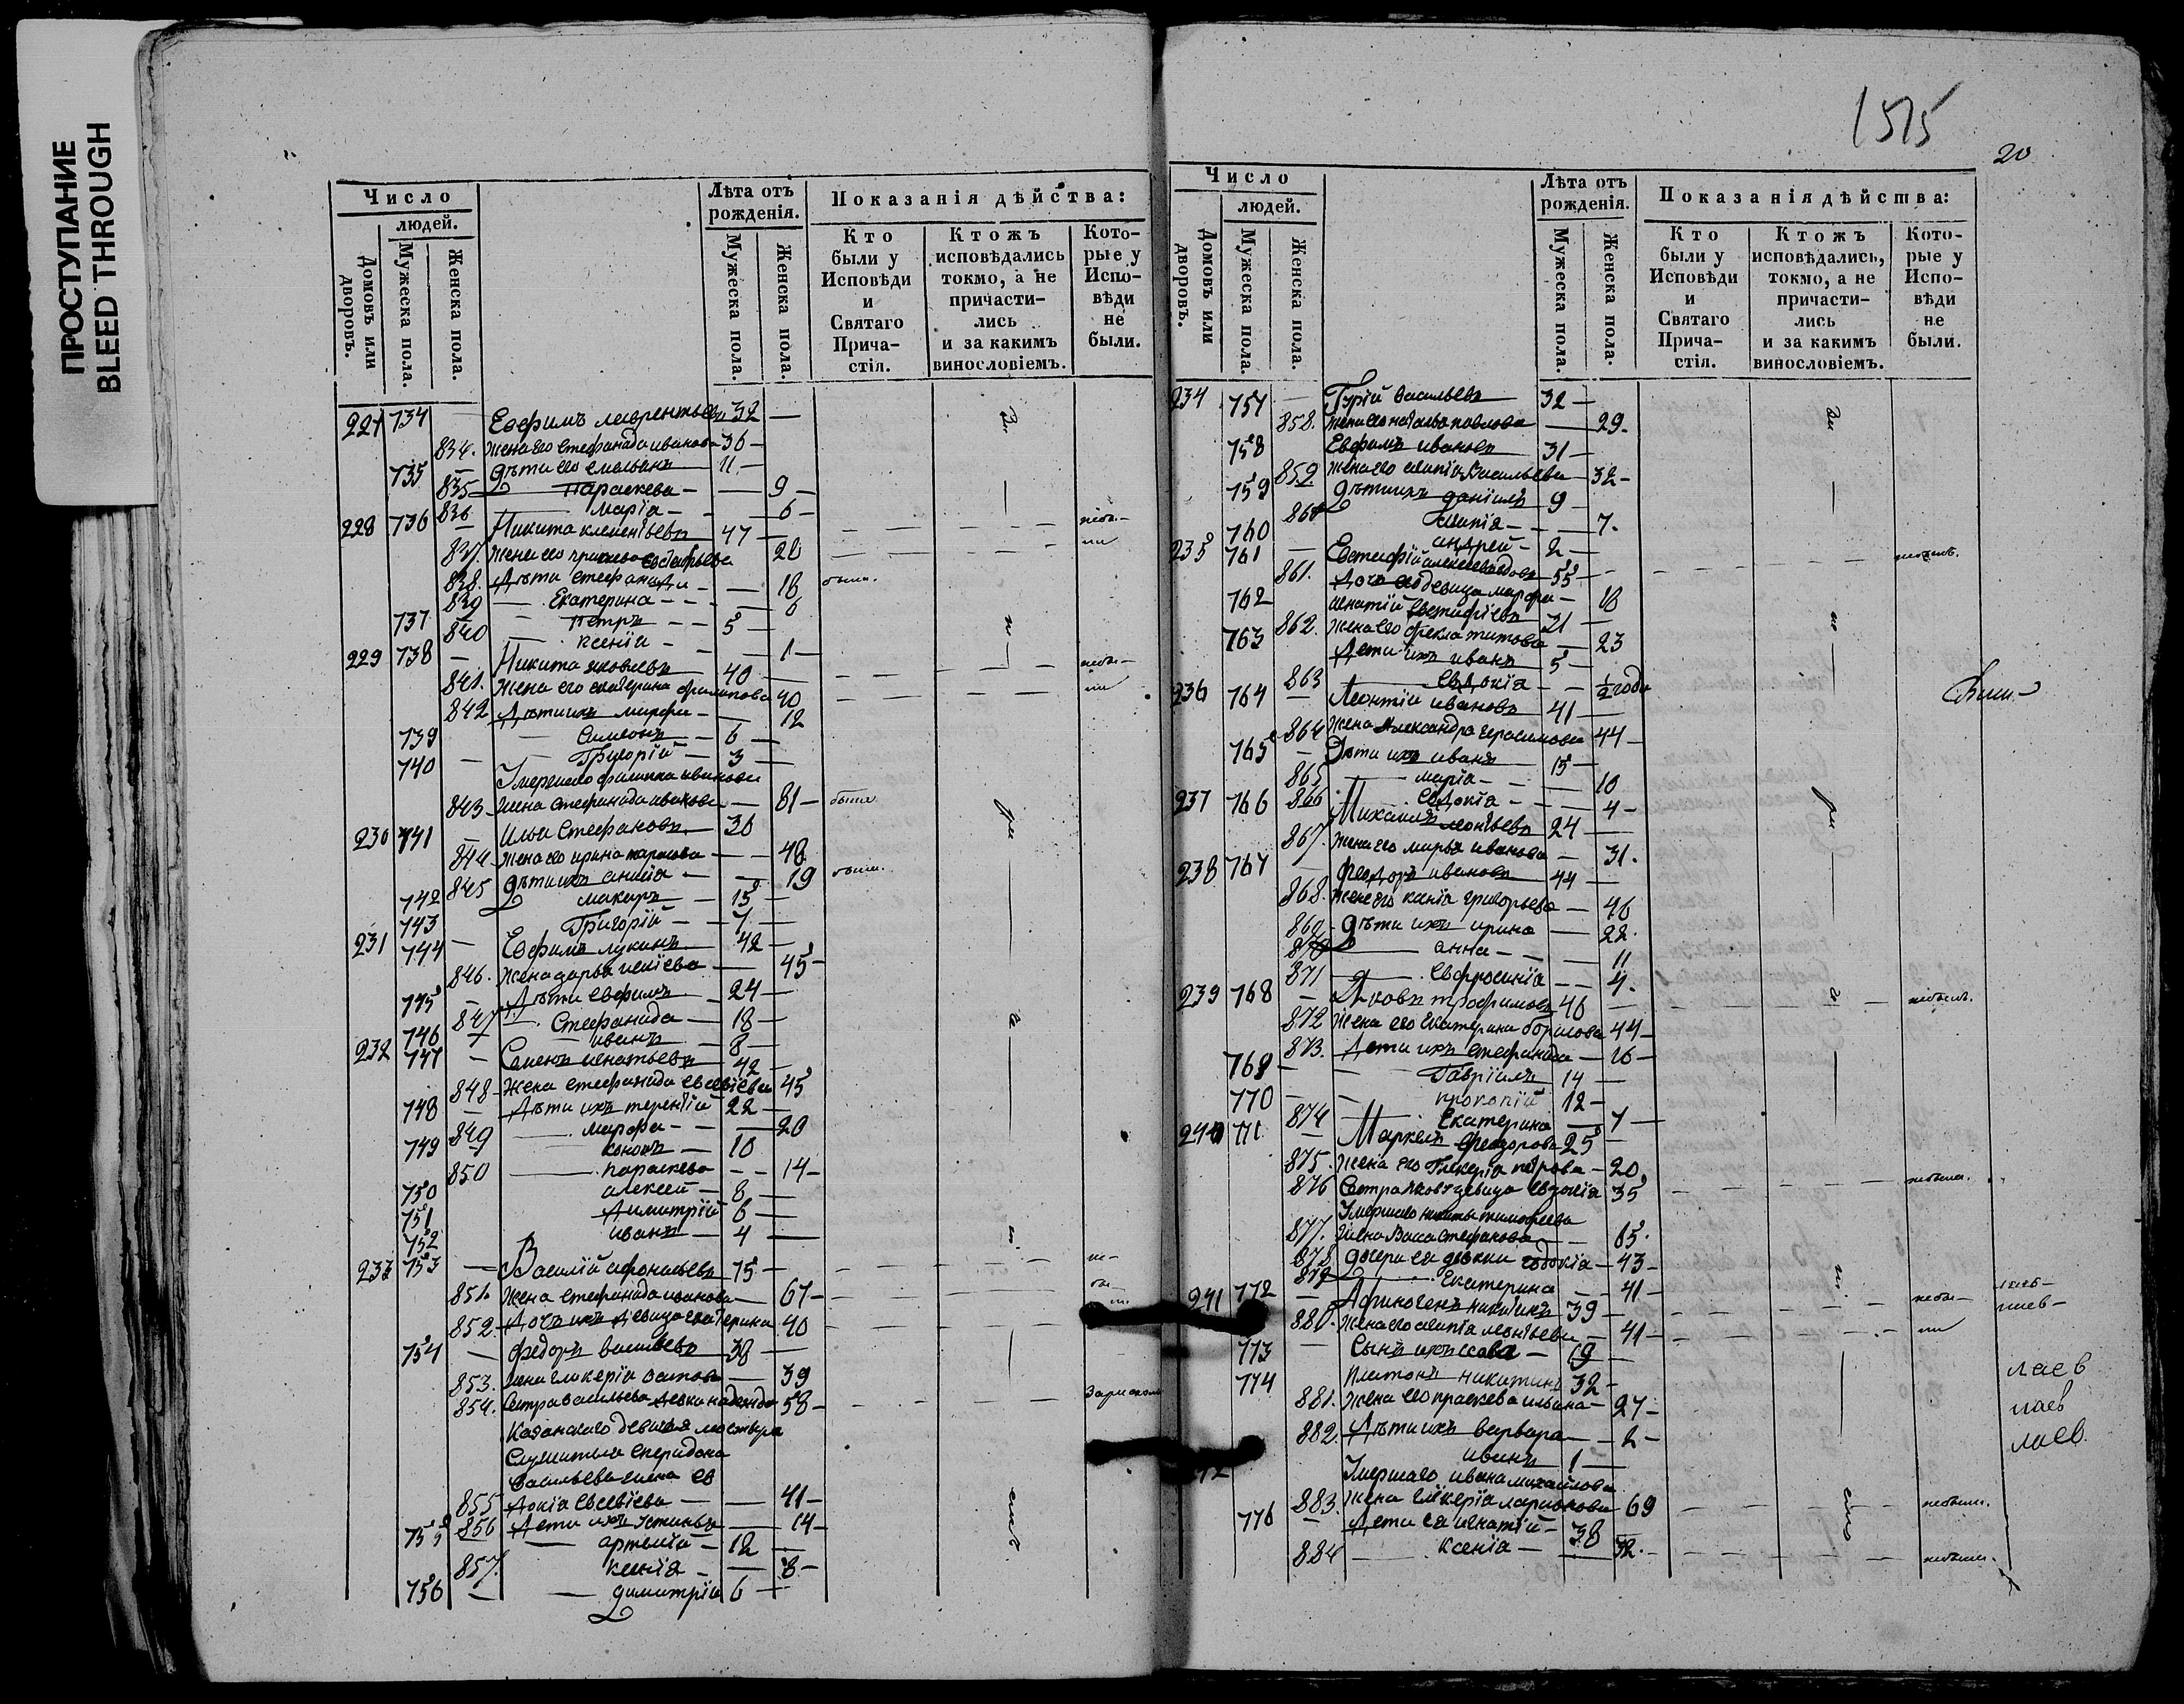 ПРОСТУПАНИЕ
BLEED THROUGH
Число
людей.
Домовъ или дворовъ.
Мужеска пола.
Женска пола.
Лѣта отъ рожденія.
Мужеска пола.
Женска пола.
Показанія дѣйства:
Кто были у Исповѣди и Святаго Прича-стія.
Ктожъ исповѣдались токмо, а не причасти-лись и за какимъ винословіемъ.
Кото-рые у Испо-вѣди не были.
227 734 — Евфимъ Лаврентьевъ 32 —
834. Жена его Стефанида иванова 36 —
735 — Дѣти его 11 —
835 — Параскева — — 9 —
836 — Марія — — 6 —
228 736 — Никита Климентьевъ 47 —
837. Жена его 28
838. Дѣти Стефанида — — 18 были.
839 — Екатерина — — 6
737 — Петръ — 5 —
840 — Ксенія — — 1 —
229 738 — Никита Яковлевъ 40 —
841. Жена его екатерина филипова 40
842 Дѣти ихъ Марфа — — 12
739 — Симеонъ — 6 —
740 — Григорій — 3 —
Умершаго филиппа иванова
843 — жена Стефанида иванова — 81 — была
230 741 — Илья Стефановъ 36
844 Жена его ирина — — 48
845 Дѣти ихъ — — 19 были.
742 Макаръ — 15 —
743 Григорій — 7 —
231 744 — Евфимъ Лукинъ 42 —
846. Жена дарья — 45 —
745 — Дѣти Евфимъ — 24 —
847 — Стефанида — 18 —
746 — иванъ — 8 —
232 747 — Семенъ Игнатьевъ 42 —
848 — Жена Стефанида евсевіева 45
748 — Дѣти ихъ терентій 22 —
849 — Марфа — — 20
749 Кононъ — 10
850 — параскева — — 14 —
750 алексей — 8 —
751 Димитрій 6 —
752 иванъ — 4 —
233 753 — Василій Афонасьевъ 75 —
851. Жена Стефанида иванова — 67 —
852. Дочь ихъ девица екатерина 40
754 — Федоръ Васильевъ 38 —
853. Жена гликерія осипова — 39
854. Сестра васильева девка надежда 58 —
Казанскаго девичья монстыря
Служителя Спиридона
Васильева жена ев
855 докіа Евсевіева — — 41 —
856 Дети ихъ Устинья — 14 —
755 — артемій — 12 —
857. Ксенія — — 8 —
756 — димитрій 6 —
1515
20
Число
людей.
Домовъ или дворовъ.
Мужеска пола.
Женска пола.
Лѣта отъ рожденія.
Мужеска пола.
Женска пола.
Показанія дѣйства:
Кто были у Исповѣди и Святаго Прича-стія.
Ктожъ исповѣдались, токмо, а не причасти-лись и за какимъ винословіемъ.
Кото-рые у Испо-вѣди не были.
234 757 — Гурій Васильевъ 32 —
858. Жена его наталья павлова — 29.
758 Евфимъ ивановъ 31 —
859 Жена его Васильева — 32 —
759 Дѣти ихъ даніилъ 9 —
860 — 7.
760 андрей — 2 —
235 761 — Евстафій 55 —
861. Дочь его девица марфа — 18
762 игнатій Евстафіевъ 21 —
862. Жена его Фекла титова — 23
763 Дети ихъ иванъ 5 —
863 евдокія — — ½ года
236 764 — Леонтій ивановъ 41 —
864 Жена Александра герасимова 44 —
765 — Дѣти ихъ иванъ 15 —
865 — марія — — 10
866 евдокія — — 4 —
237 766 Михаилъ леонтьевъ 24 —
867. Жена его марья иванова — 31.
238 767 — Федоръ ивановъ 44 —
868. Жена его григорьева — 46
869 — Дѣти ихъ ирина — 22.
870 анна — — 11
871 — евфросинія — — 4.
239 768 — Яковъ трофимовъ 46 —
872 Жена его екатерина борисова 44 —
873. Дети ихъ Стефанида — 16 —
769 — Гавріилъ 14 —
770 — прокопій 12 —
874 — Екатерина — 7 —
240 771 — Маркелъ Федоровъ 25 —
875. Жена его Гликерія петрова — 20
876 Сестра девица евдокія 35
Умершаго никиты тимофеева
877. Жена Васса Стефанова — 65.
878 Дочери ея девки — 43 —
879 Екатерина — 41 —
241 772 — Афиногенъ никитинъ 39 —
880. Жена его леонтьева — 41 —
773 — Сынъ ихъ савва — 19 —
774 Платонъ никитинъ 32 —
881. Жена его праскева ильина — 27 —
882. Дѣти ихъ варвара — 2 —
иванъ 1 —
Умершаго ивана михайлова
883. Жена гликерія ларионова 69
776 — Дети ея игнатій — 38 —
884 — Ксенія — — 32.